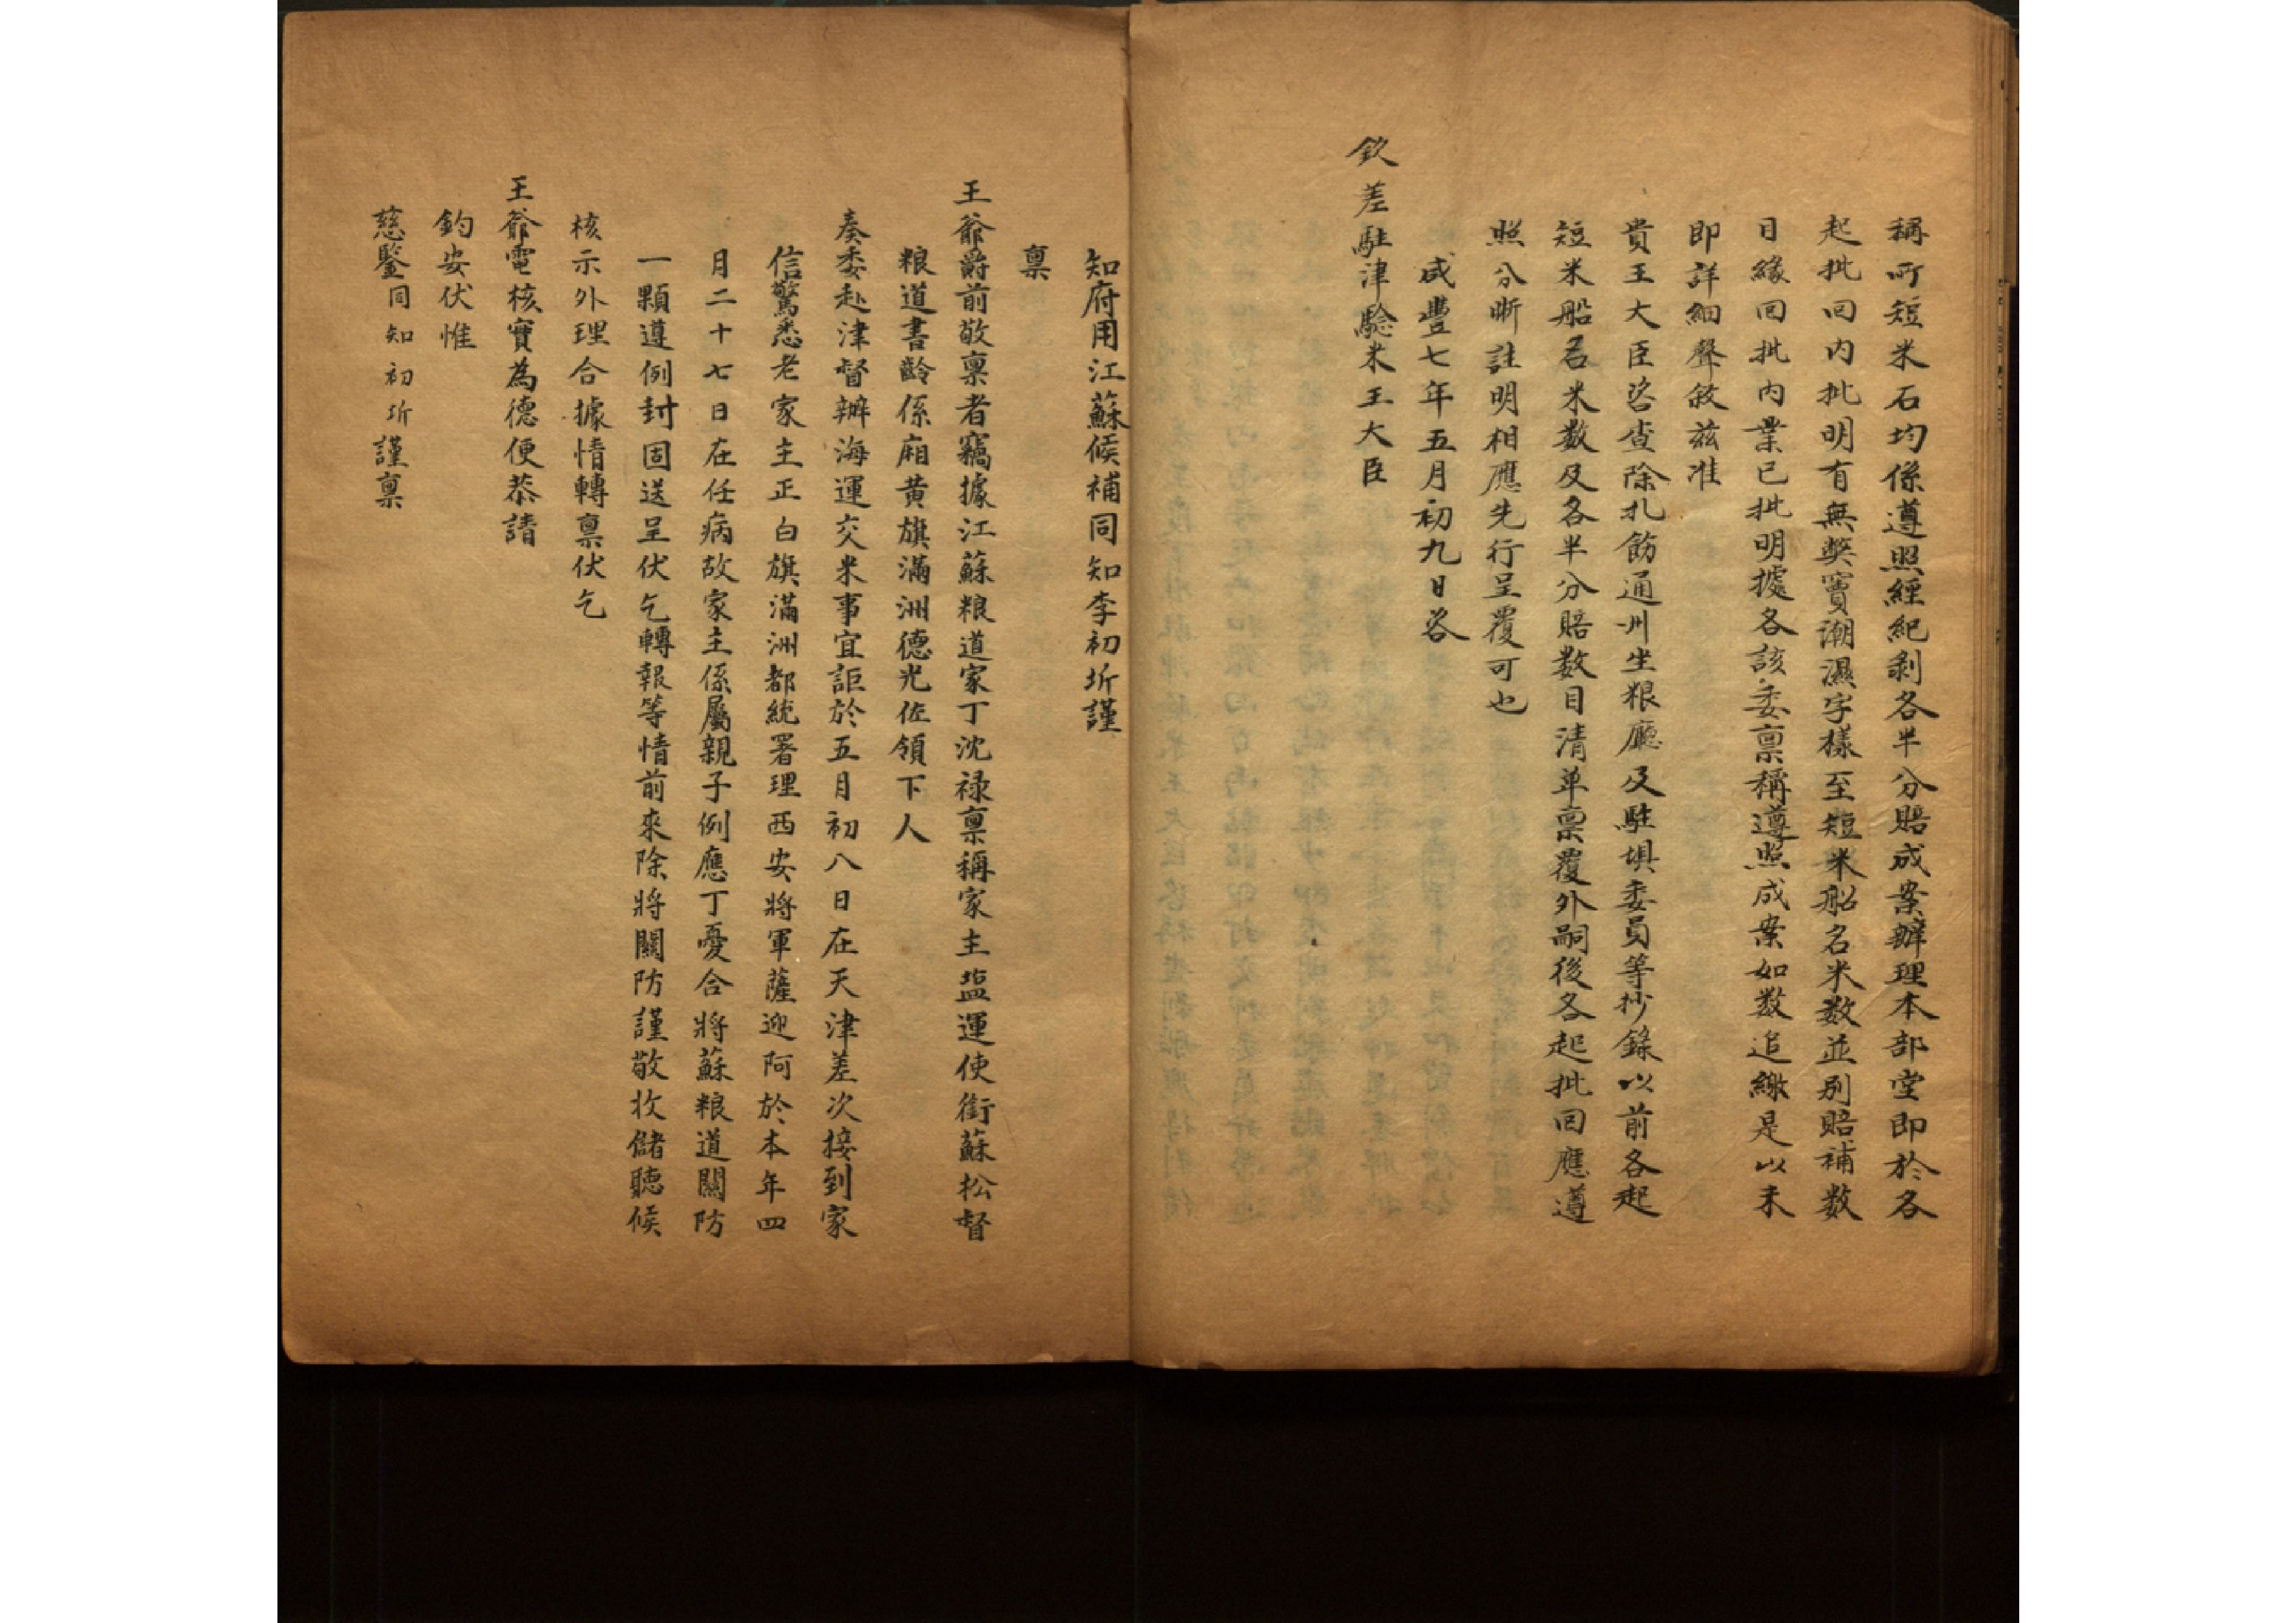 稱所短米石均係遵照經紀剥各半分賠成案辦理本部堂即於各
起批回内批明有無獘竇潮濕字樣至短米船名米数並别賠補数
目緣回批内業已批明據各該委禀稱遵照成案如数追繳是以未
即詳細聲敘兹准
貴王大臣咨查除扎飭通州坐粮廳及駐埧委員等抄錄以前各起
短米船名米数及各半分賠数目清单禀覆外嗣後各起批回應遵
照分晰註明相應先行呈覆可也
咸豐七年五月初九日咨
欽差駐津驗米王大臣
知府用江蘇候補同知李初圻謹
禀
王爺爵前敬禀者竊據江蘇粮道家丁沈禄禀稱家主盐運使銜蘇松督
粮道書齡係廂黄旗滿洲德光佐領下人
奏委赴津督辦海運交米事宜詎於五月初八日在天津差次接到家
信驚悉老家主正白旗滿洲都統署理西安將軍薩迎阿於本年四
月二十七日在任病故家主係屬親子例應丁憂合將蘇粮道關防
一顆遵例封固送呈伏乞轉報等情前來除將關防謹敬收儲聽候
核示外理合據情轉禀伏乞
王爺電核實為德便恭請
鈞安伏惟
慈鑒同知初圻謹禀